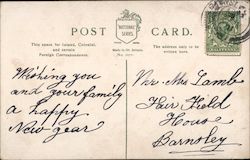 POST CARD.
NATIONAL SERIES
This space for Inland, Colonial,
and certain
Foreign Correspondence.
The address only to be
written here.
Wishing you
and your family
a happy
New year
Mr. Mrs Lamb
Fair Field
House
Barnsley